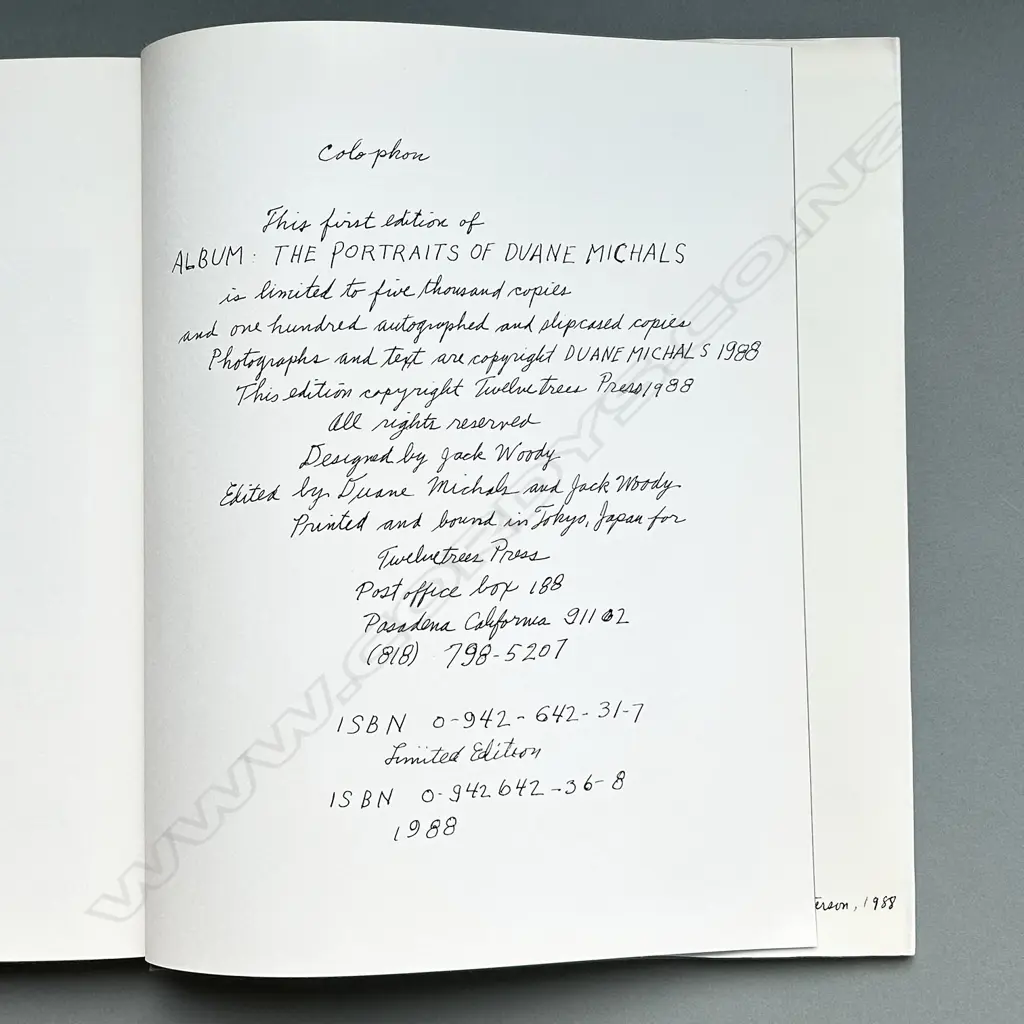 Colophon
This first edition of
ALBUM: THE PORTRAITS OF DUANE MICHALS
is limited to five thousand copies
and one hundred autographed and slipcased copies
Photographs and text are copyright DUANE MICHALS 1988
This edition copyright Twelvetrees Press 1988
All rights reserved
Designed by Jack Woody
Edited by Duane Michals and Jack Woody
Printed and bound in Tokyo, Japan for
Twelvetrees Press
Post office box 188
Pasadena California 91102
(818) 798-5207
ISBN 0-942-642-31-7
Limited Edition
ISBN 0-942642-36-8
1988
erson, 1988
WWW.CORDYS.CO.NZ